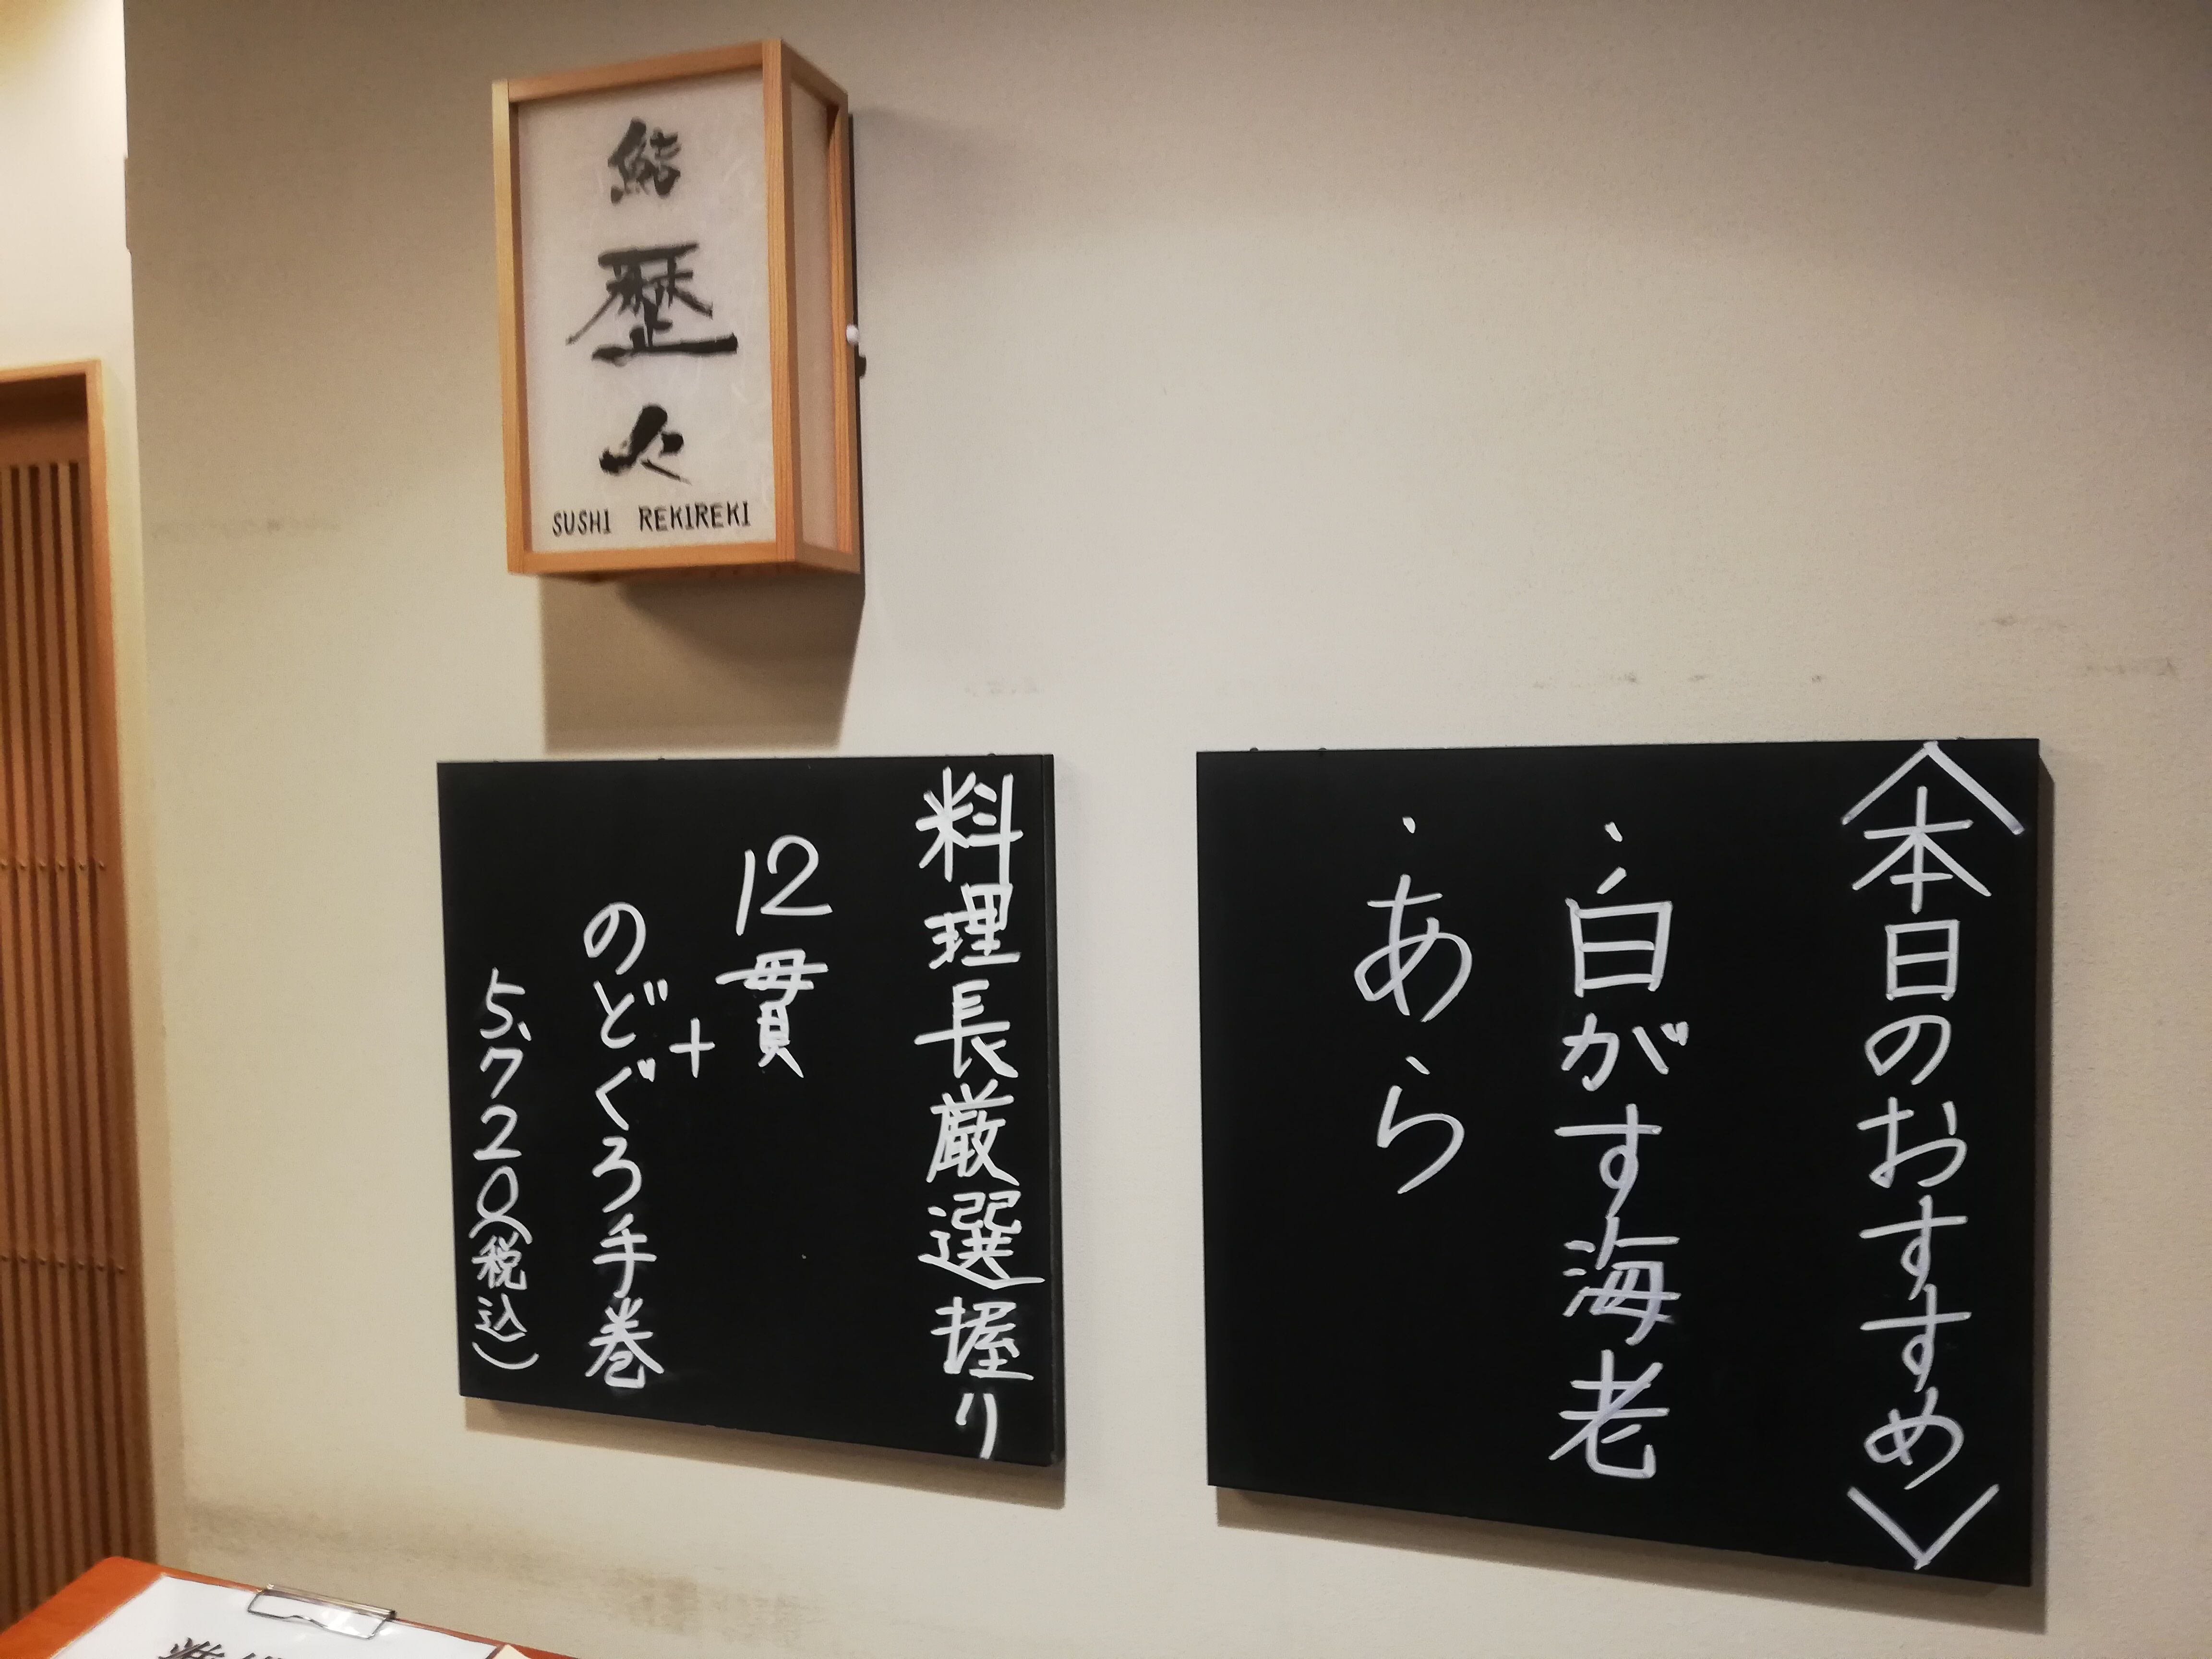 鮨 歴々
SUSHI REKIREKI
〈本日のおすすめ〉
・白がす海老
・あら
料理長厳選握り
12貫
+
のどぐろ手巻
5,720(税込)